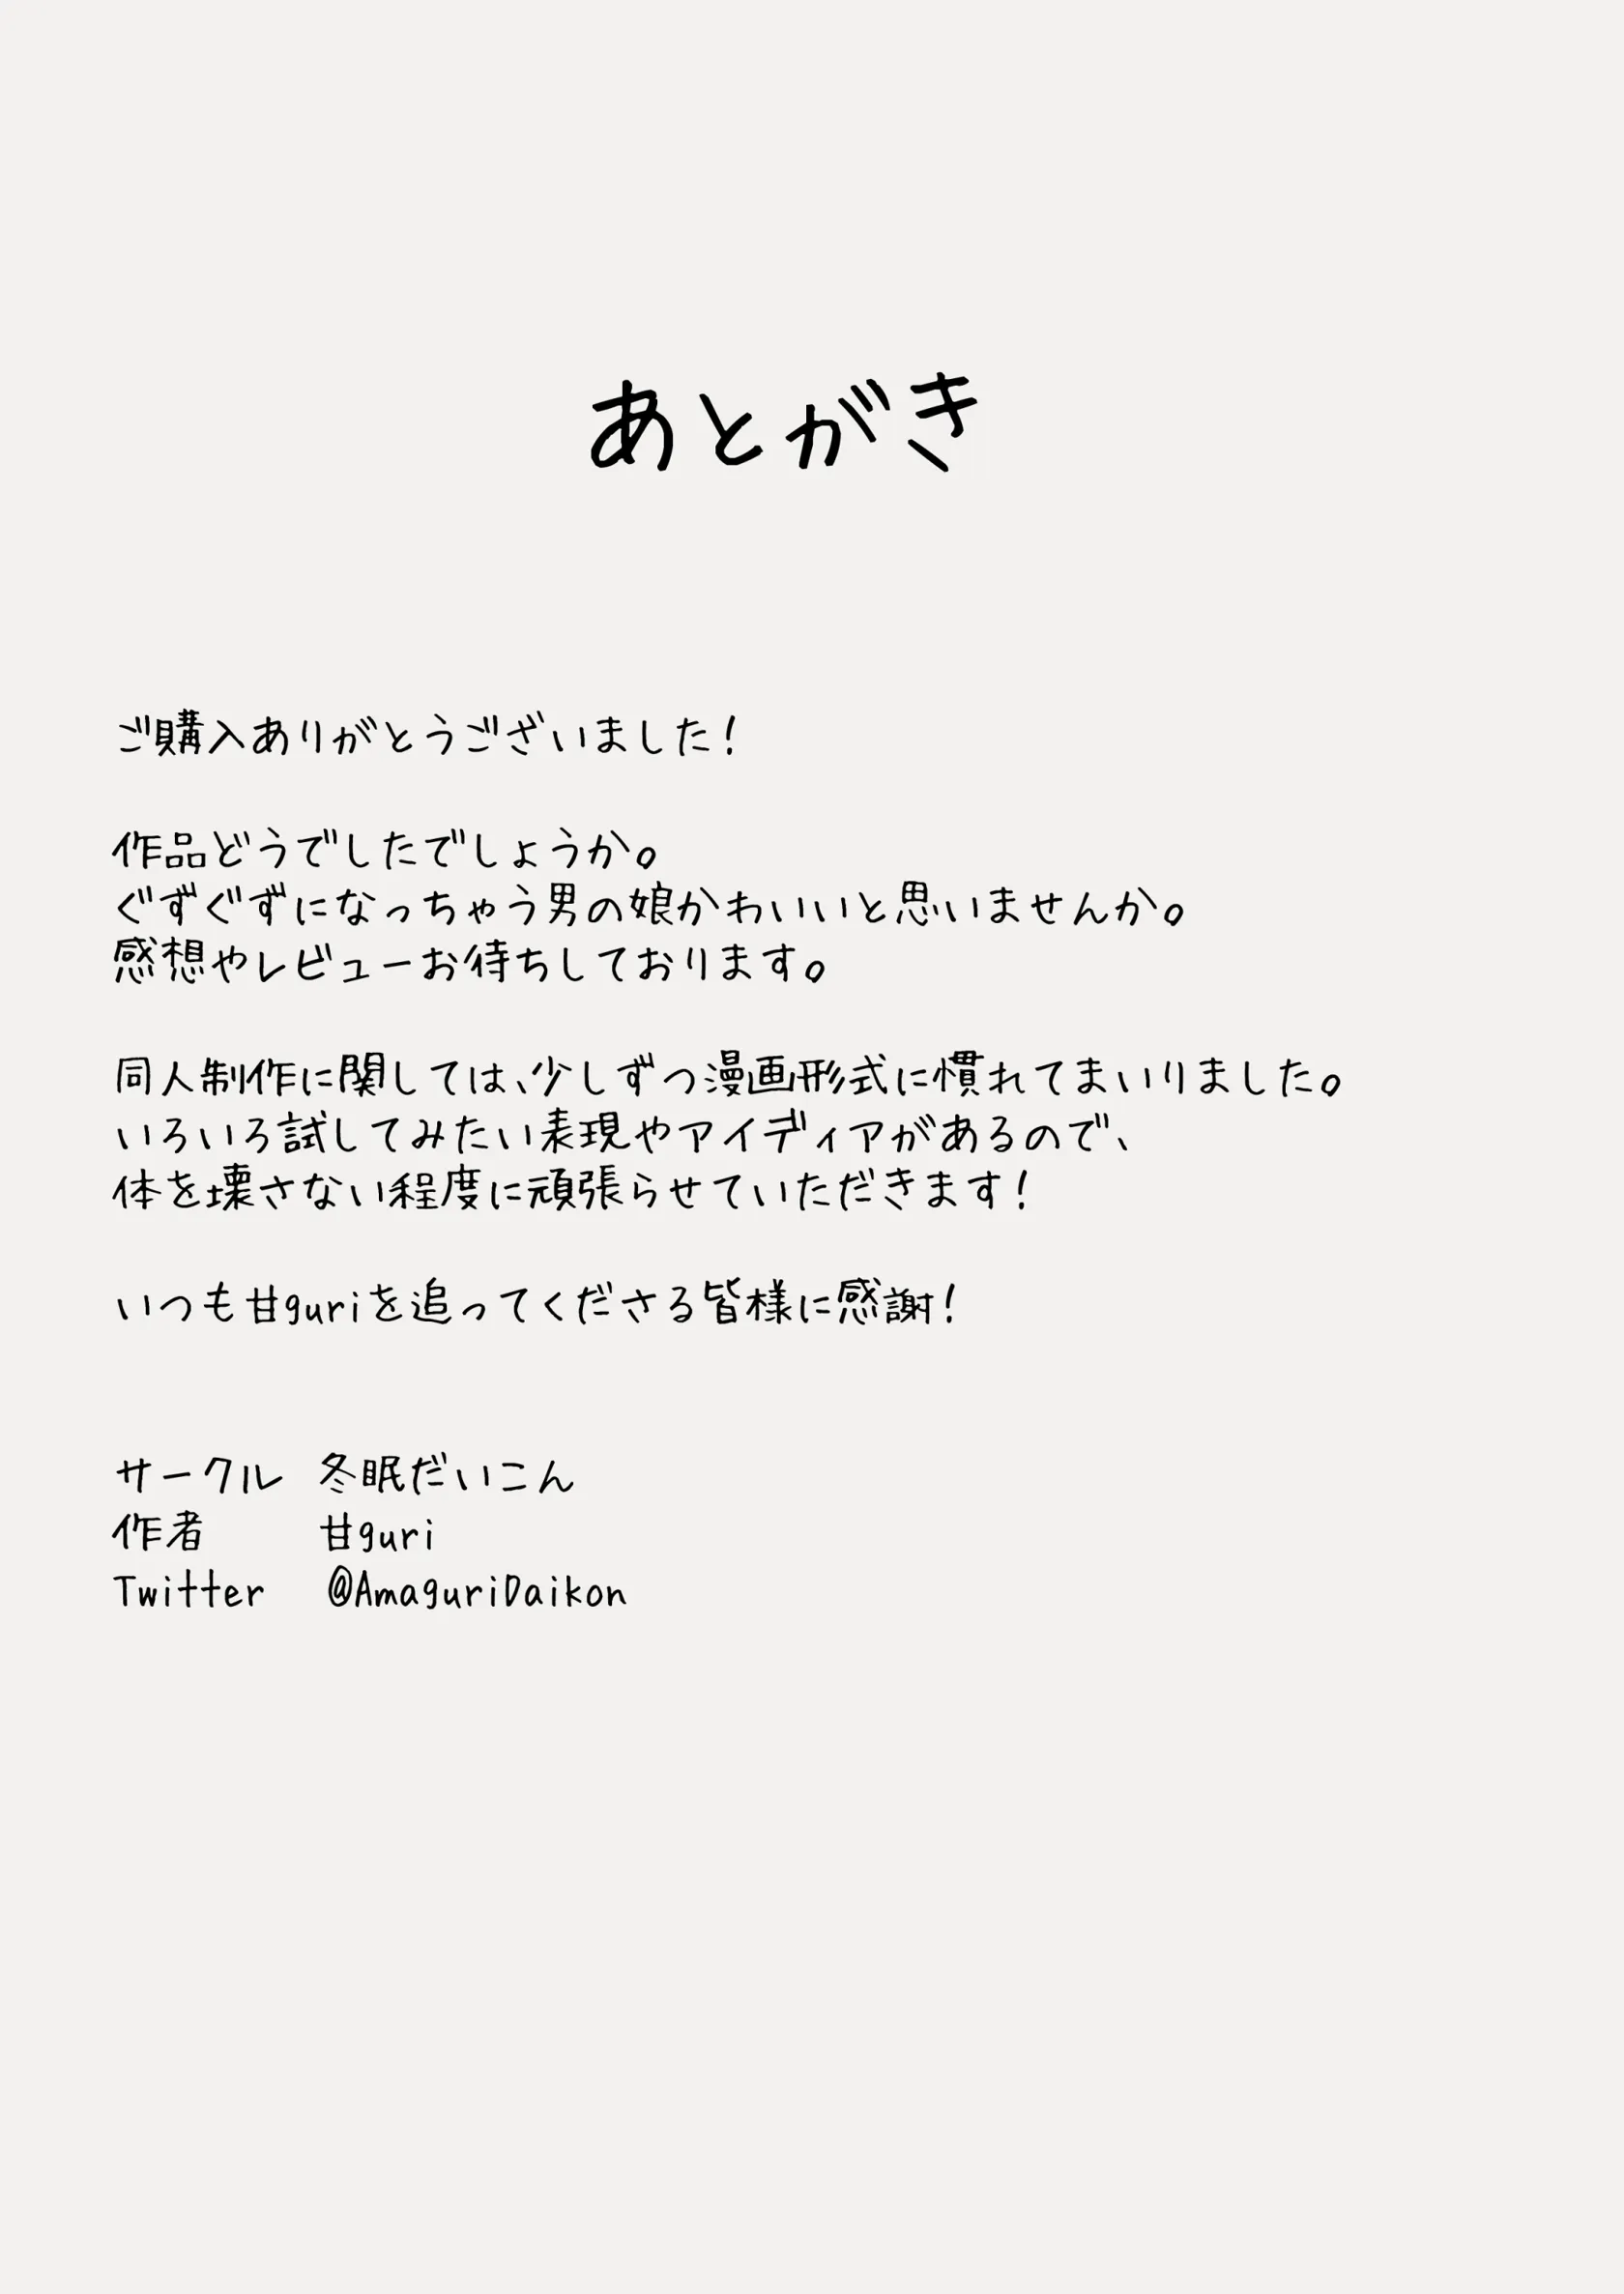 あとがき
ご購入ありがとうございました!
作品どうでしたでしょうか。
ぐずぐずになっちゃう男の娘かわいいと思いませんか。
感想やレビューお待ちしております。
同人制作に関しては、少しずつ漫画形式に慣れてまいりました。
いろいろ試してみたい表現やアイディアがあるので、
体を壊さない程度に頑張らせていただきます!
いつも甘guriを追ってくださる皆様に感謝!
サークル 冬眠だいこん
作者 甘guri
Twitter @AmaguriDaikon